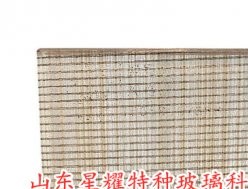 山东星耀特种玻璃科